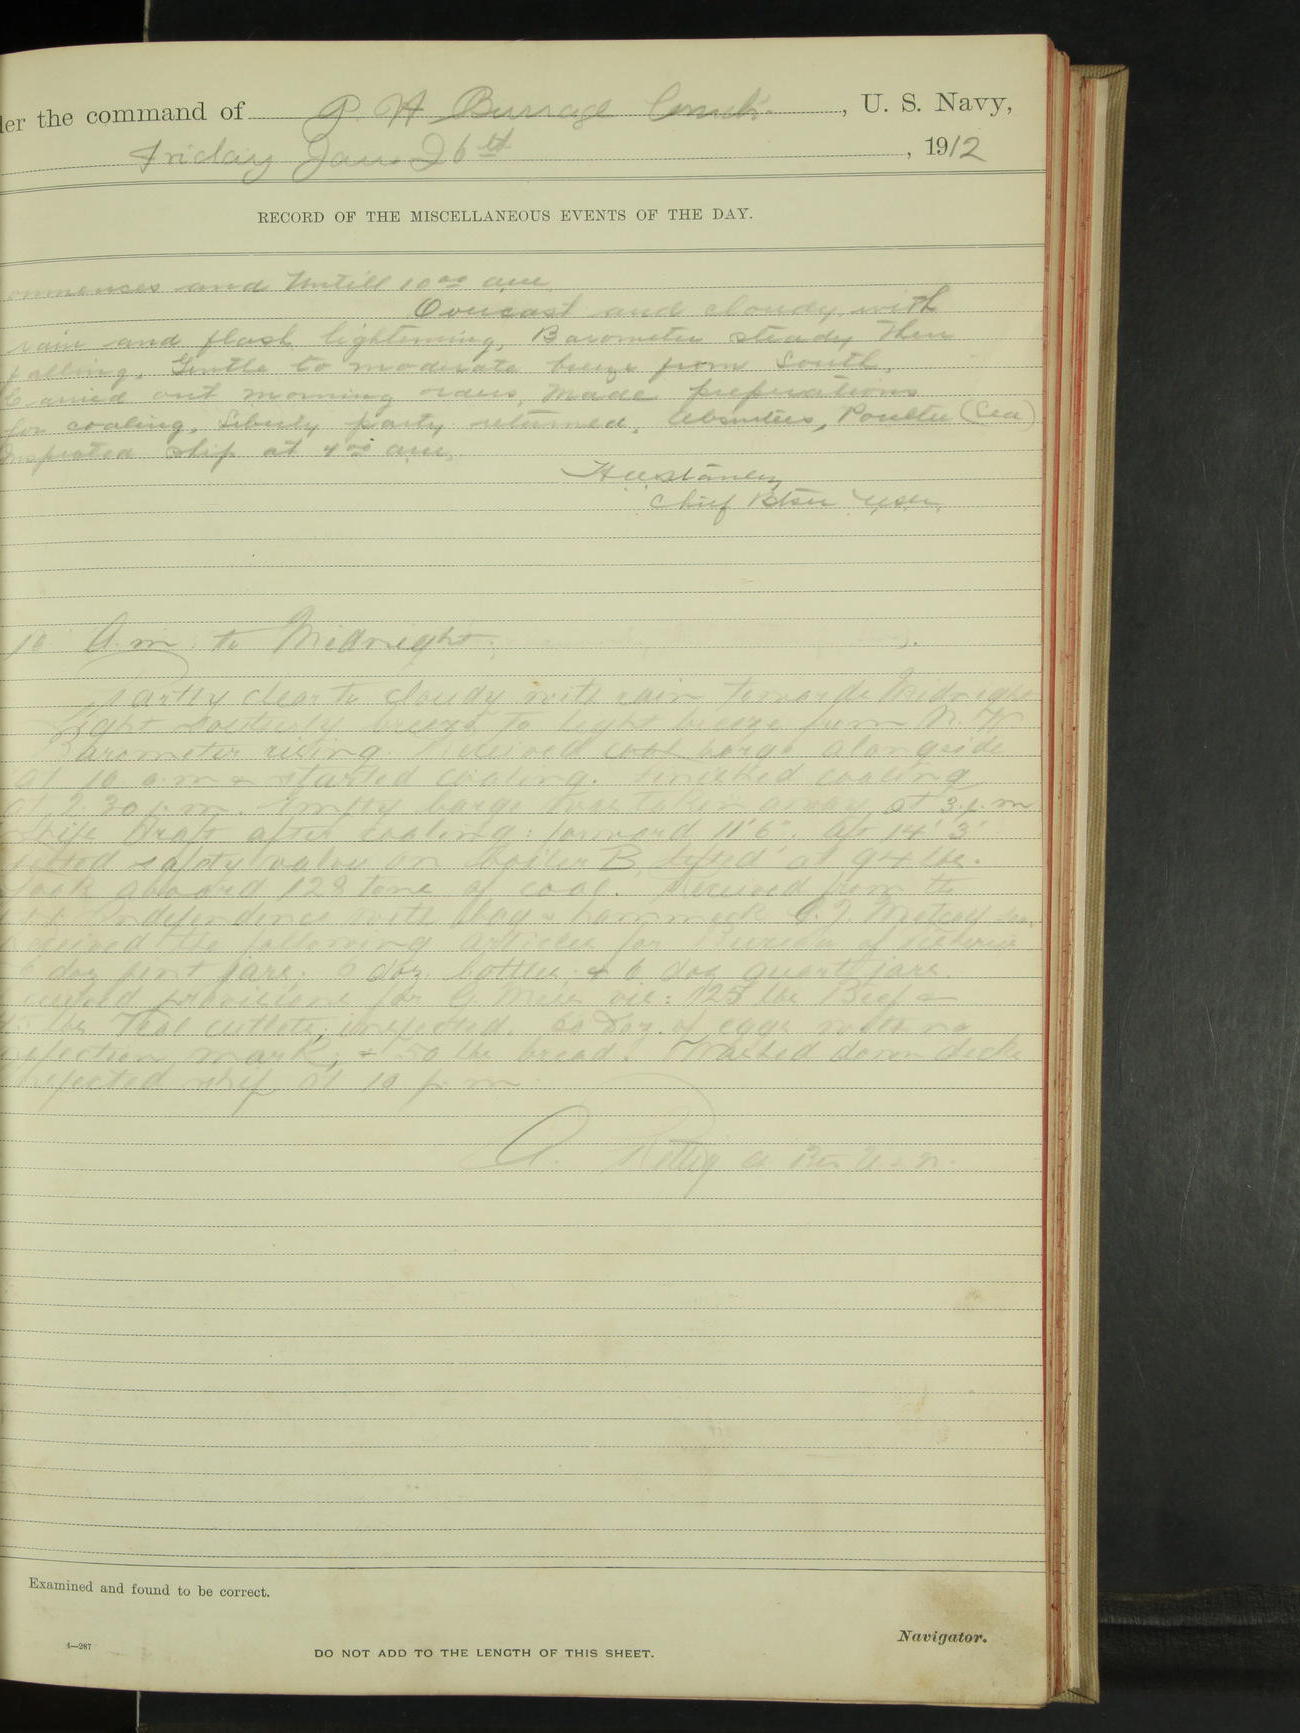 der the command of G. H Burrage Comdr. , U. S. Navy,
Friday Jan 26th , 1912
RECORD OF THE MISCELLANEOUS EVENTS OF THE DAY.
ommences and Untill 10 00 am
Overcast and cloudy with
rain and flash lightening, Barometer steady then
falling. Gentle to moderate breeze from South.
Carried out morning orders, Made preperations
for coaling. Liberty party returned. Absentees, Poulter (Sea)
Inspected ship at 4 00 am.
Chief Btsn USN.
10 A.m. to Midnight.
Partly clear to cloudy with rain towards Midnight
Light Southerly breeze to light breeze from N. W
Barometer rising. Received coal barge alongside
at 10 a.m & started coaling. Finished coaling
at 2.30 p.m Empty barge was taken away at 3 p.m
Ships draft after coaling: forward 11' 6". Aft 14' 3"
tested safety valve on boiler B, lifted at 94 lbs.
Took aboard 128 tons of coal. Received from the
Independence with bag & hammock
Received the following articles for Bureau of Fisheries
6 doz pint jars; 6 doz. bottles; & 6 doz quart jars.
Received provisions for G. Mess viz: 125 lbs Beef &
lbs Veal cutlets, inspected. 60 Doz. of eggs with no
inspection mark; & 50 lbs bread. Washed down decks
Inspected ship at 10 p.m
A. Rettig a Btsn U.S.N.
Examined and found to be correct.
Navigator.
4—287
DO NOT ADD TO THE LENGTH OF THIS SHEET.